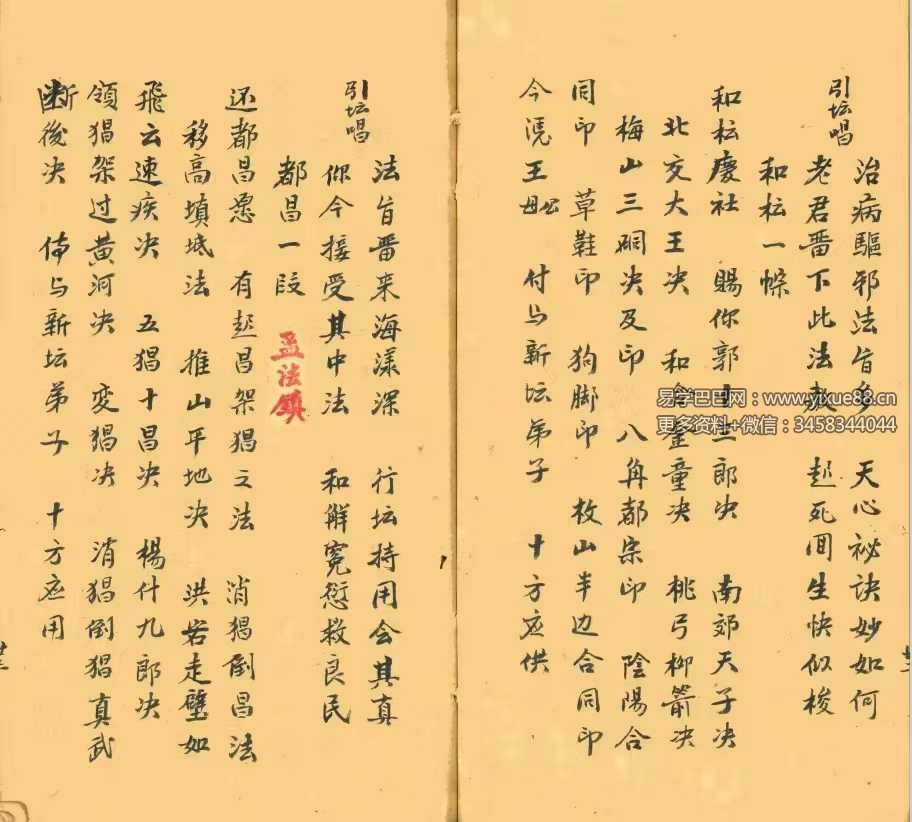 引坛唱
治病驅邪法旨多 天心祕訣妙如何
老君晋下此法教 起死囬生快似梭
和枟一條
和枟慶社 賜你郭 郎决 南郊天子决
北交大王决 和合金童决 桃弓柳箭决
梅山三峒决及印 八角都宗印 陰陽合
同印 草鞋印 狗脚印 枚山半边合同印
今凭王母 付与新坛弟子 十方应供
引坛唱
法旨晋来海漾深 行坛持用会其真
你今接受其中法 和解冤愆救良民
都昌一段
孟法鎮
还都昌愿 有起昌架猖之法 消猖倒昌法
移高填低法 推山平地决 洪岩走壁如
飛云速疾决 五猖十昌决 楊什九郎决
領猖架过黄河决 变猖决 消猖倒猖真武
断後决 俦与新坛弟子 十方应用
易学巴巴网：www.yixue88.cn
更多资料+微信：3458344044